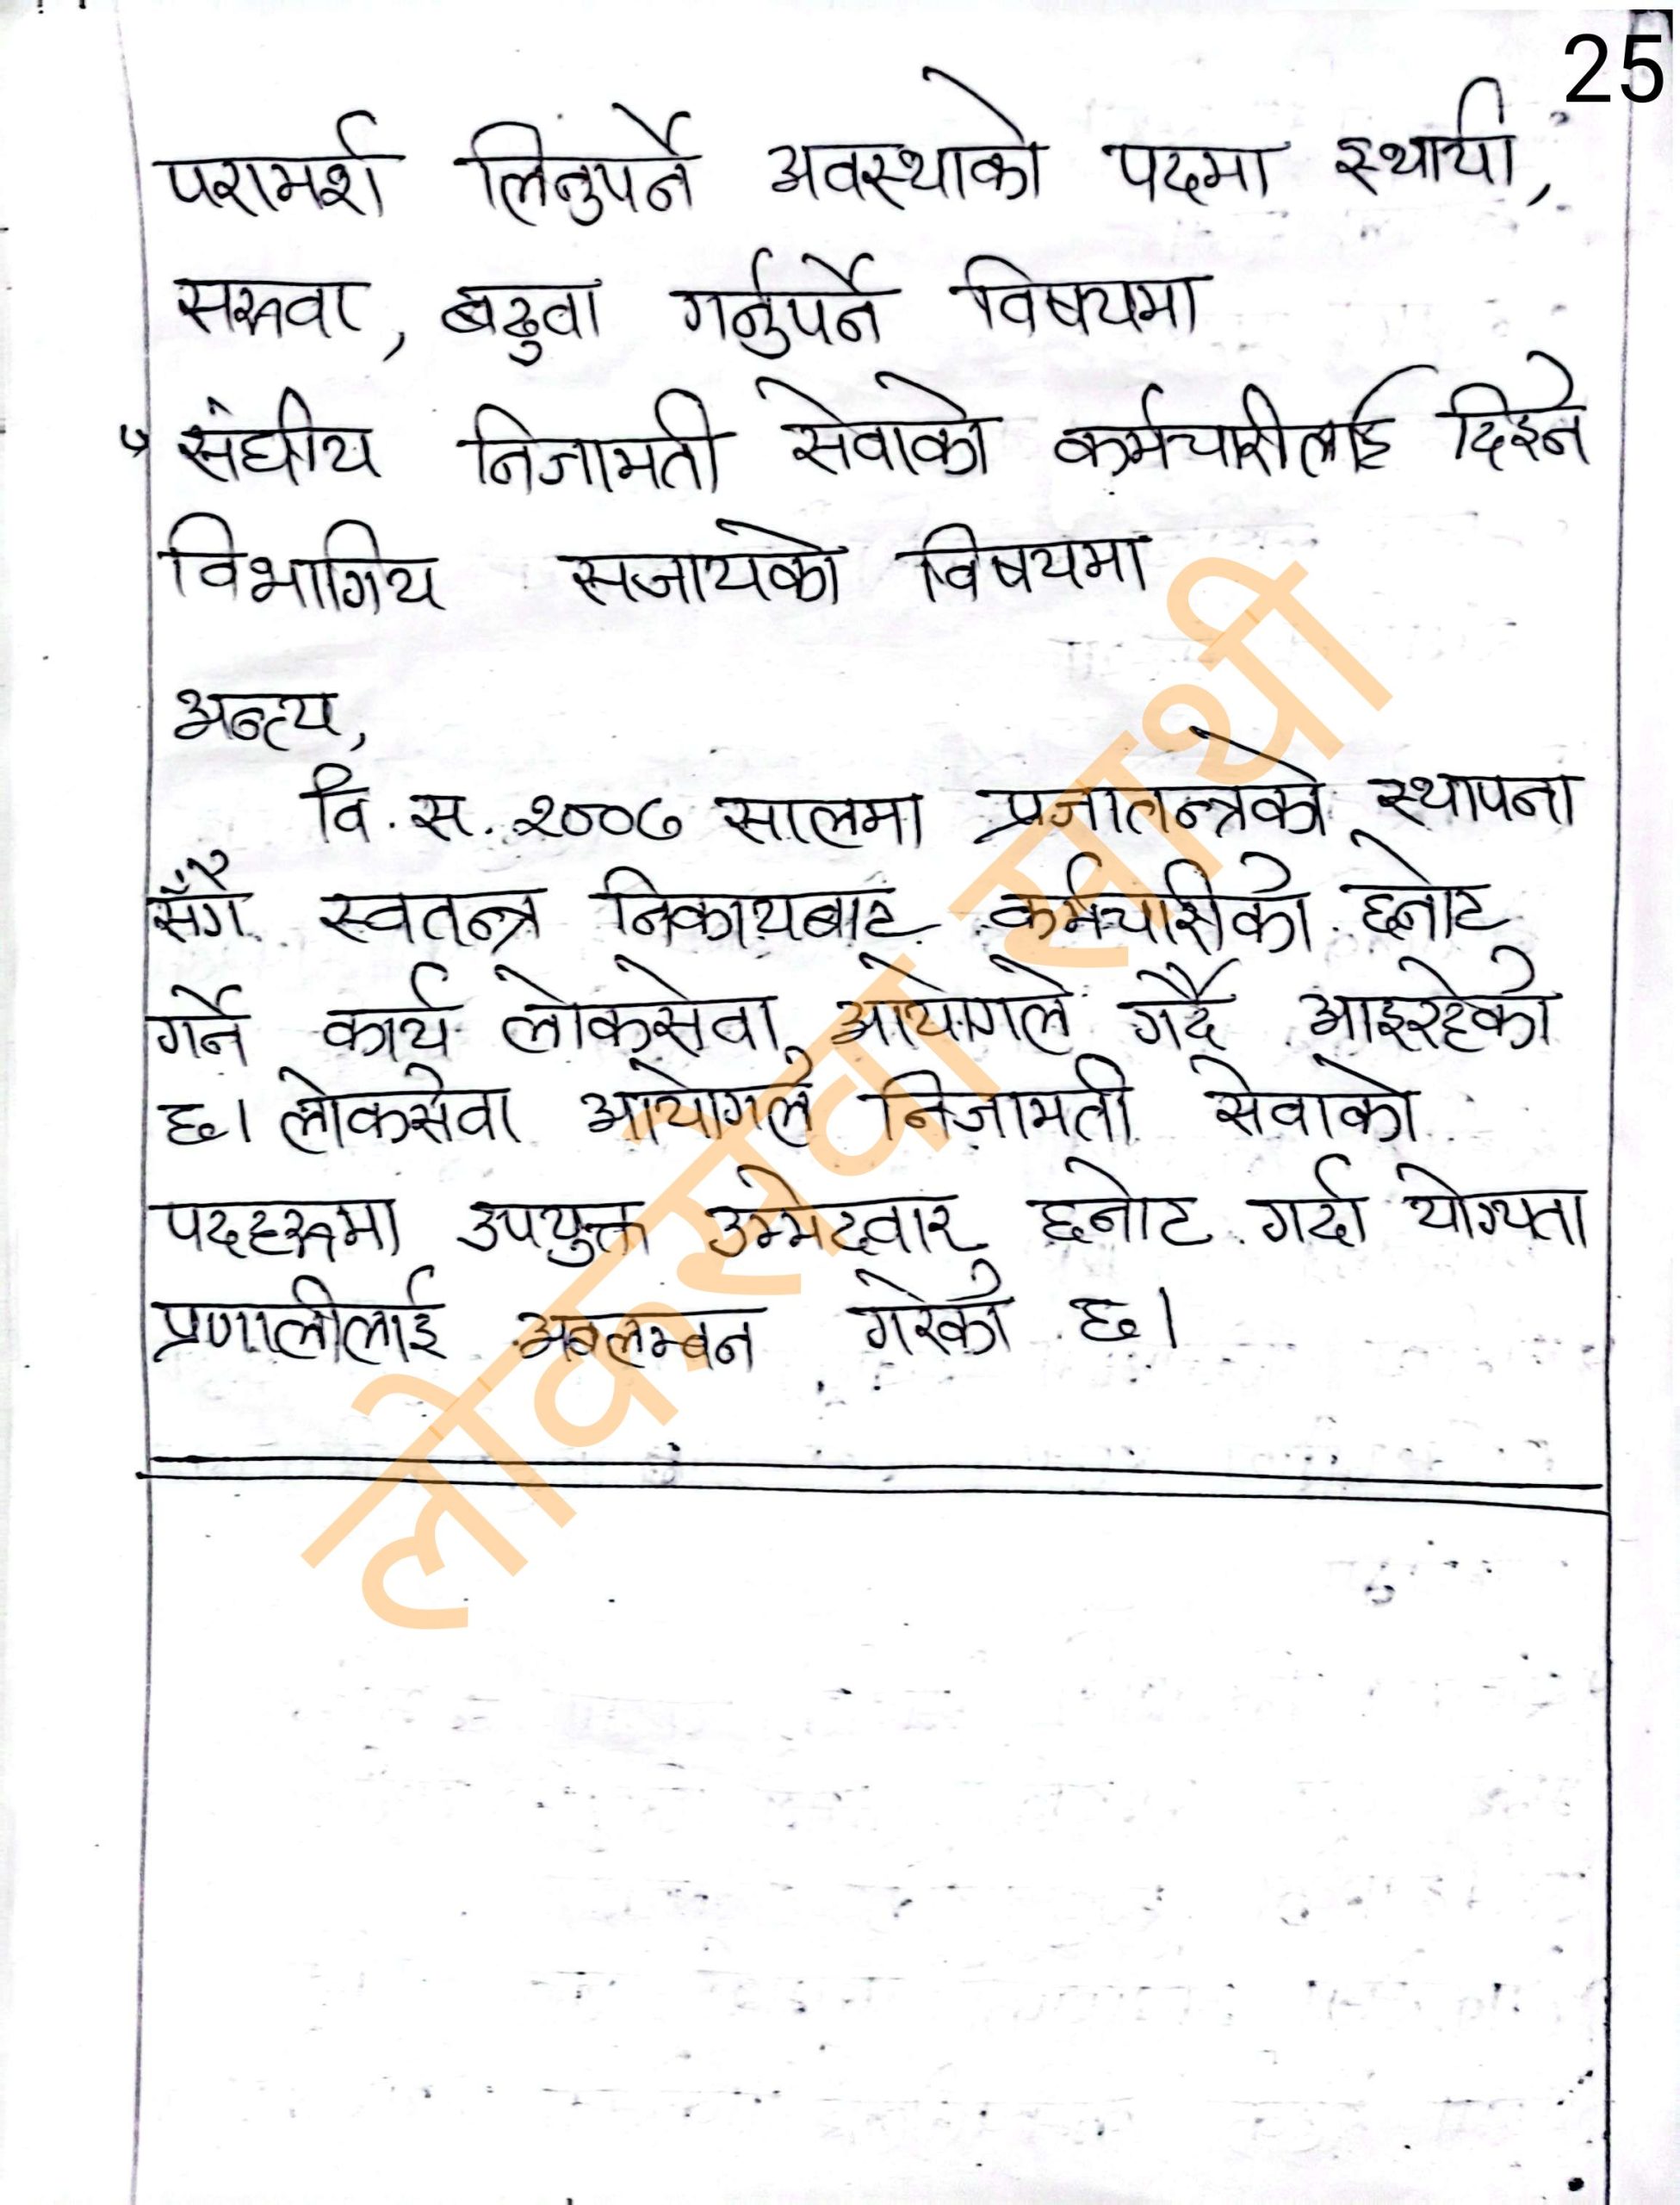 25
परामर्श लिनुपर्ने अवस्थाको पदमा स्थायी,
सरुवा, बढुवा गर्नुपर्ने विषयमा
संघीय निजामती सेवाको कर्मचारीलाई दिइने
विभागिय सजायको विषयमा
अन्त्य,
वि.स. २००७ सालमा प्रजातन्त्रको स्थापना
सँगै स्वतन्त्र निकायबाट कर्मचारीको छनोट
गर्ने कार्य लोकसेवा आयोगले गर्दै आइरहेको
छ। लोकसेवा आयोगले निजामती सेवाको
पदहरुमा उपयुक्त उम्मेदवार छनोट गर्दा योग्यता
प्रणालीलाई अवलम्बन गरेको छ।
लोकसेवा साथी